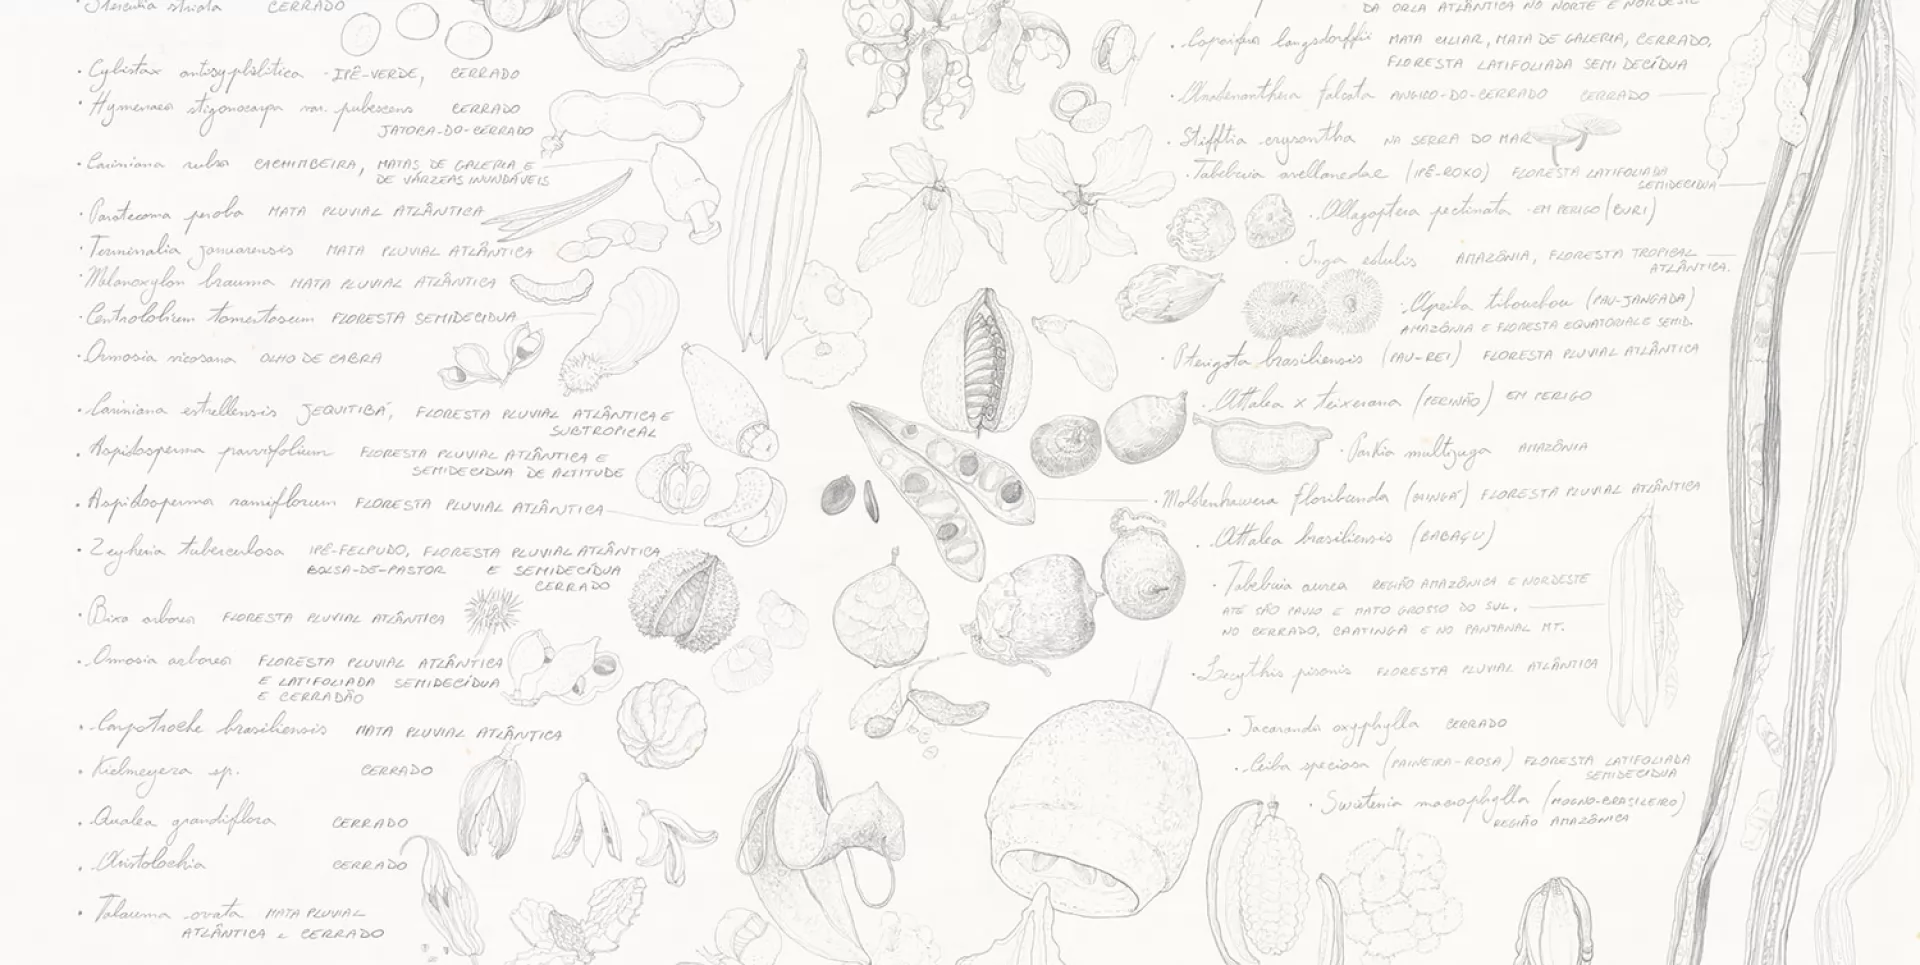 Sterculia striata CERRADO
· Cybistax antisyphilitica - IPÊ-VERDE, CERRADO
· Hymenaea stigonocarpa var. pubescens CERRADO
JATOBA-DO-CERRADO
· Cariniana rubra CACHIMBEIRA, MATAS DE GALERIA E
DE VÁRZEAS INUNDÁVEIS
· Paratecoma peroba MATA PLUVIAL ATLÂNTICA
· Terminalia januarensis MATA PLUVIAL ATLÂNTICA
· Melanoxylon brauma MATA PLUVIAL ATLÂNTICA
· Centrolobium tomentosum FLORESTA SEMIDECIDUA
· Ormosia nicosana OLHO DE CABRA
· Cariniana estrellensis JEQUITIBÁ, FLORESTA PLUVIAL ATLÂNTICA E
SUBTROPICAL
· Aspidosperma parvifolium FLORESTA PLUVIAL ATLÂNTICA E
SEMIDECIDUA DE ALTITUDE
· Aspidosperma ramiflorum FLORESTA PLUVIAL ATLÂNTICA
· Zeyheria tuberculosa IPÊ-FELPUDO, FLORESTA PLUVIAL ATLÂNTICA
BOLSA-DE-PASTOR E SEMIDECÍDUA
CERRADO
· Bixa arborea FLORESTA PLUVIAL ATLÂNTICA
· Ormosia arborea FLORESTA PLUVIAL ATLÂNTICA
E LATIFOLIADA SEMIDECÍDUA
E CERRADÃO
· Carpotroche brasiliensis MATA PLUVIAL ATLÂNTICA
· Kielmeyera sp. CERRADO
· Qualea grandiflora CERRADO
· Aristolochia CERRADO
· Talauma ovata MATA PLUVIAL
ATLÂNTICA e CERRADO
DA ORLA ATLÂNTICA NO NORTE E NORDESTE
· Copaifera langsdorffii MATA CILIAR, MATA DE GALERIA, CERRADO,
FLORESTA LATIFOLIADA SEMIDECÍDUA
· Anadenanthera falcata ANGICO-DO-CERRADO CERRADO
· Stifftia crysantha NA SERRA DO MAR
· Tabebuia avellanedae (IPÊ-ROXO) FLORESTA LATIFOLIADA
SEMIDECIDUA
· Allagoptera pectinata - EM PERIGO (BURI)
· Inga edulis AMAZÔNIA, FLORESTA TROPICAL
ATLÂNTICA.
· Apeiba tibourbou (PAU-JANGADA)
AMAZÔNIA E FLORESTA EQUATORIAL E SEMID.
· Pterigota brasiliensis (PAU-REI) FLORESTA PLUVIAL ATLÂNTICA
· Attalea x teixerana (PERINÃO) EM PERIGO
· Parkia multijuga AMAZÔNIA
· Moldenhawera floribunda FLORESTA PLUVIAL ATLÂNTICA
· Attalea brasiliensis (BABAÇU)
· Tabebuia aurea REGIÃO AMAZÔNICA E NORDESTE
ATÉ SÃO PAULO E MATO GROSSO DO SUL,
NO CERRADO, CAATINGA E NO PANTANAL MT.
· Lecythis pisonis FLORESTA PLUVIAL ATLÂNTICA
· Jacaranda oxyphylla CERRADO
· Ceiba speciosa (PAINEIRA-ROSA) FLORESTA LATIFOLIADA
SEMIDECIDUA
· Swietenia macrophylla (MOGNO-BRASILEIRO)
REGIÃO AMAZÔNICA